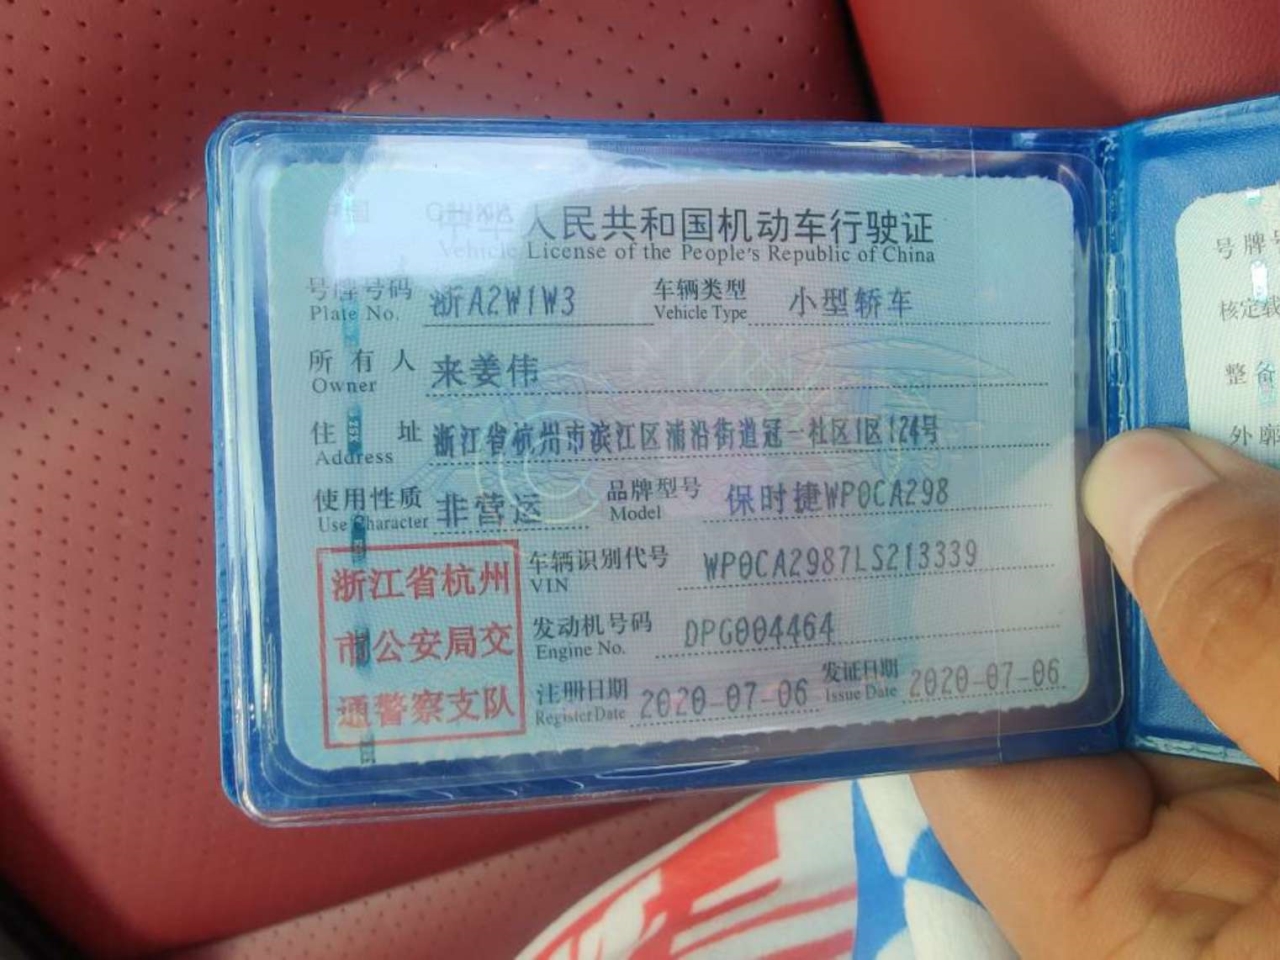 中国 CHINA
中华人民共和国机动车行驶证
Vehicle License of the People's Republic of China
号牌号码 浙A2W1W3 车辆类型 小型轿车
Plate No. Vehicle Type
所有人 来姜伟
Owner
住址 浙江省杭州市滨江区浦沿街道冠一社区1区124号
Address
使用性质 非营运 品牌型号 保时捷WP0CA298
Use Character Model
浙江省杭州市公安局交通警察支队
车辆识别代号 WP0CA2987LS213339
VIN
发动机号码 DPG004464
Engine No.
注册日期 2020-07-06 发证日期 2020-07-06
Register Date Issue Date
号牌号
核定载
整备
外廓